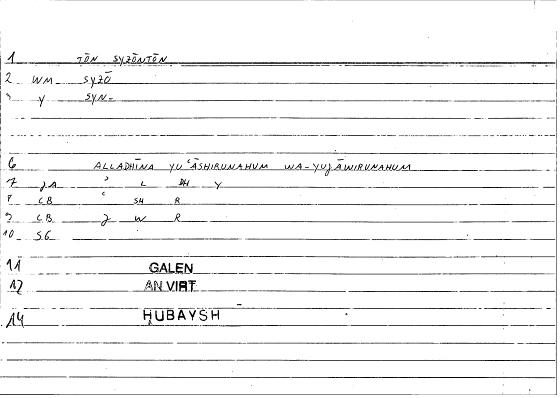 1 TŌN SYZŌNTŌN
2 WM SYZŌ
3 Y SYN-
6 ALLADHĪNA YUʿĀSHIRUNAHUM WA-YUǦĀWIRUNAHUM
7 ǦA ʾ L DH Y
8 CB ʿ SH R
9 CB Ǧ W R
10 SG
11 GALEN
12 AN VIRT
14 ḤUBAYSH